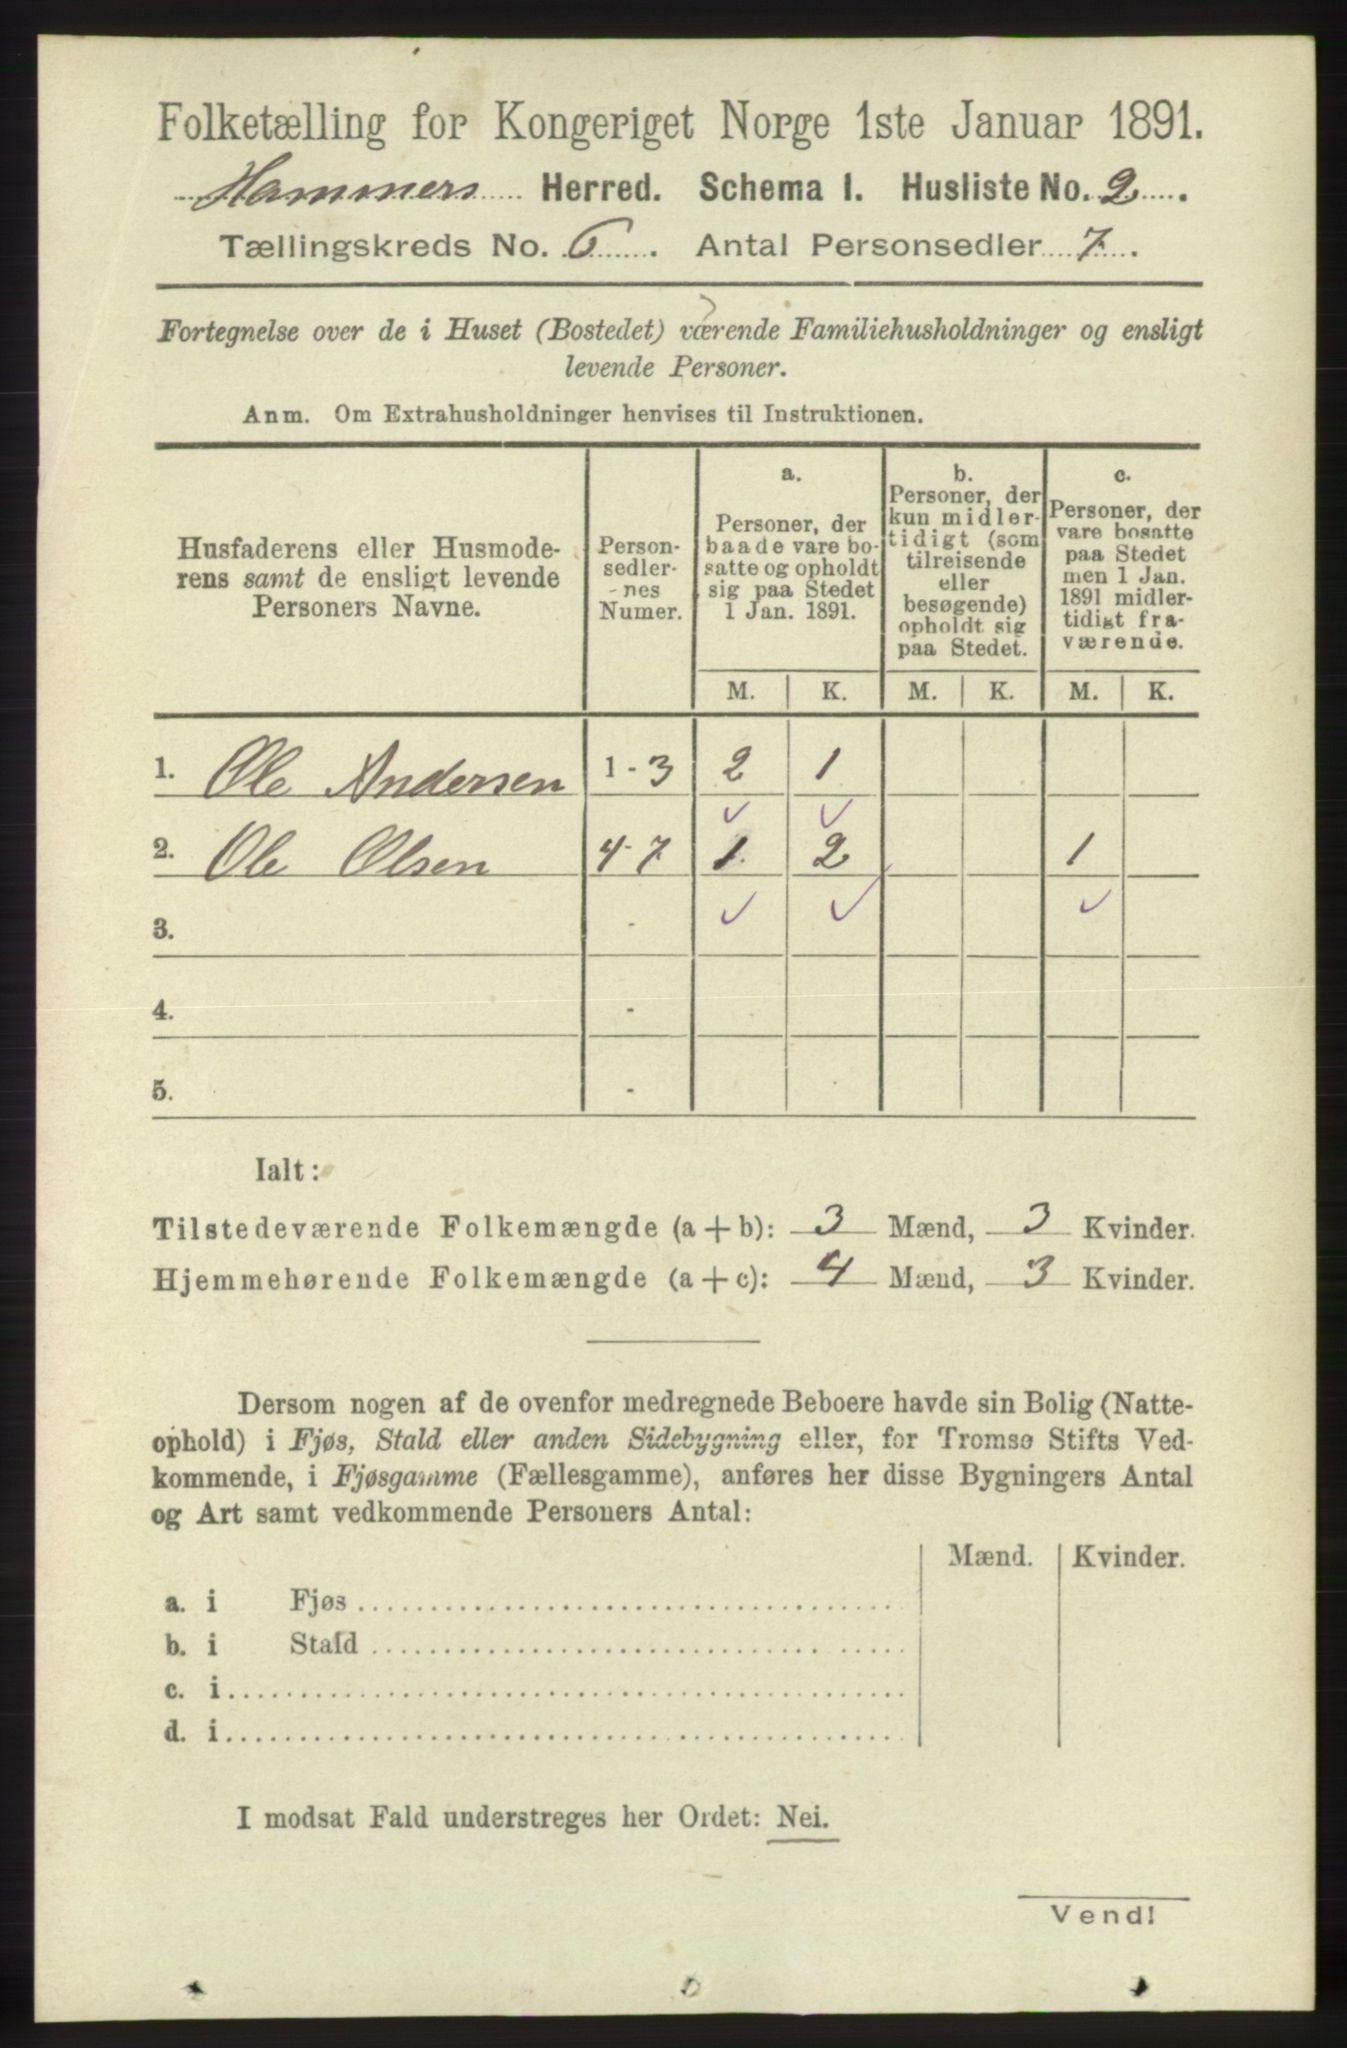 Folketælling for Kongeriget Norge 1ste Januar 1891.
Hammers Herred. Schema 1. Husliste No. 2.
Tællingskreds No. 6. Antal Personsedler 7.
Fortegnelse over de i Huset (Bostedet) værende Familiehusholdninger og ensligt
levende Personer.
Anm. Om Extrahusholdninger henvises til Instruktionen.
Husfaderens eller Husmode-
rens samt de ensligt levende
Personers Navne.
Person-
sedler-
nes
Numer.
a.
Personer, der
baade vare bo-
satte og opholdt
sig paa Stedet
1 Jan. 1891.
b.
Personer, der
kun midler-
tidigt (som
tilreisende
eller
besøgende)
opholdt sig
paa Stedet.
c.
Personer, der
vare bosatte
paa Stedet
men 1 Jan.
1891 midler-
tidigt fra-
værende.
M. K. M. K. M. K.
1. Ole Andersen 1 - 3 2 1
2. Ole Olsen 4 - 7 1 2 1
3. -
4. -
5. -
Ialt:
Tilstedeværende Folkemængde (a + b): 3 Mænd, 3 Kvinder.
Hjemmehørende Folkemængde (a + c): 4 Mænd, 3 Kvinder.
Dersom nogen af de ovenfor medregnede Beboere havde sin Bolig (Natte-
ophold) i Fjøs, Stald eller anden Sidebygning eller, for Tromsø Stifts Ved-
kommende, i Fjøsgamme (Fællesgamme), anføres her disse Bygningers Antal
og Art samt vedkommende Personers Antal:
Mænd. Kvinder.
a. i Fjøs
b. i Stald
c. i
d. i
I modsat Fald understreges her Ordet: Nei.
Vend!